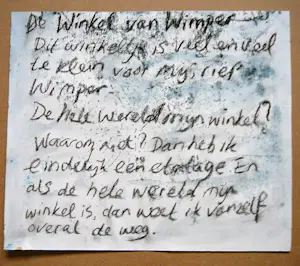 De Winkel van Wimper
Dit winkeltje is veel en veel
te klein voor mij, rief
Wimper.
De hele wereld mijn winkel?
Waarom niet? Dan heb ik
eindelijk een etalage. En
als de hele wereld mijn
winkel is, dan weet ik vanzelf
overal de weg.